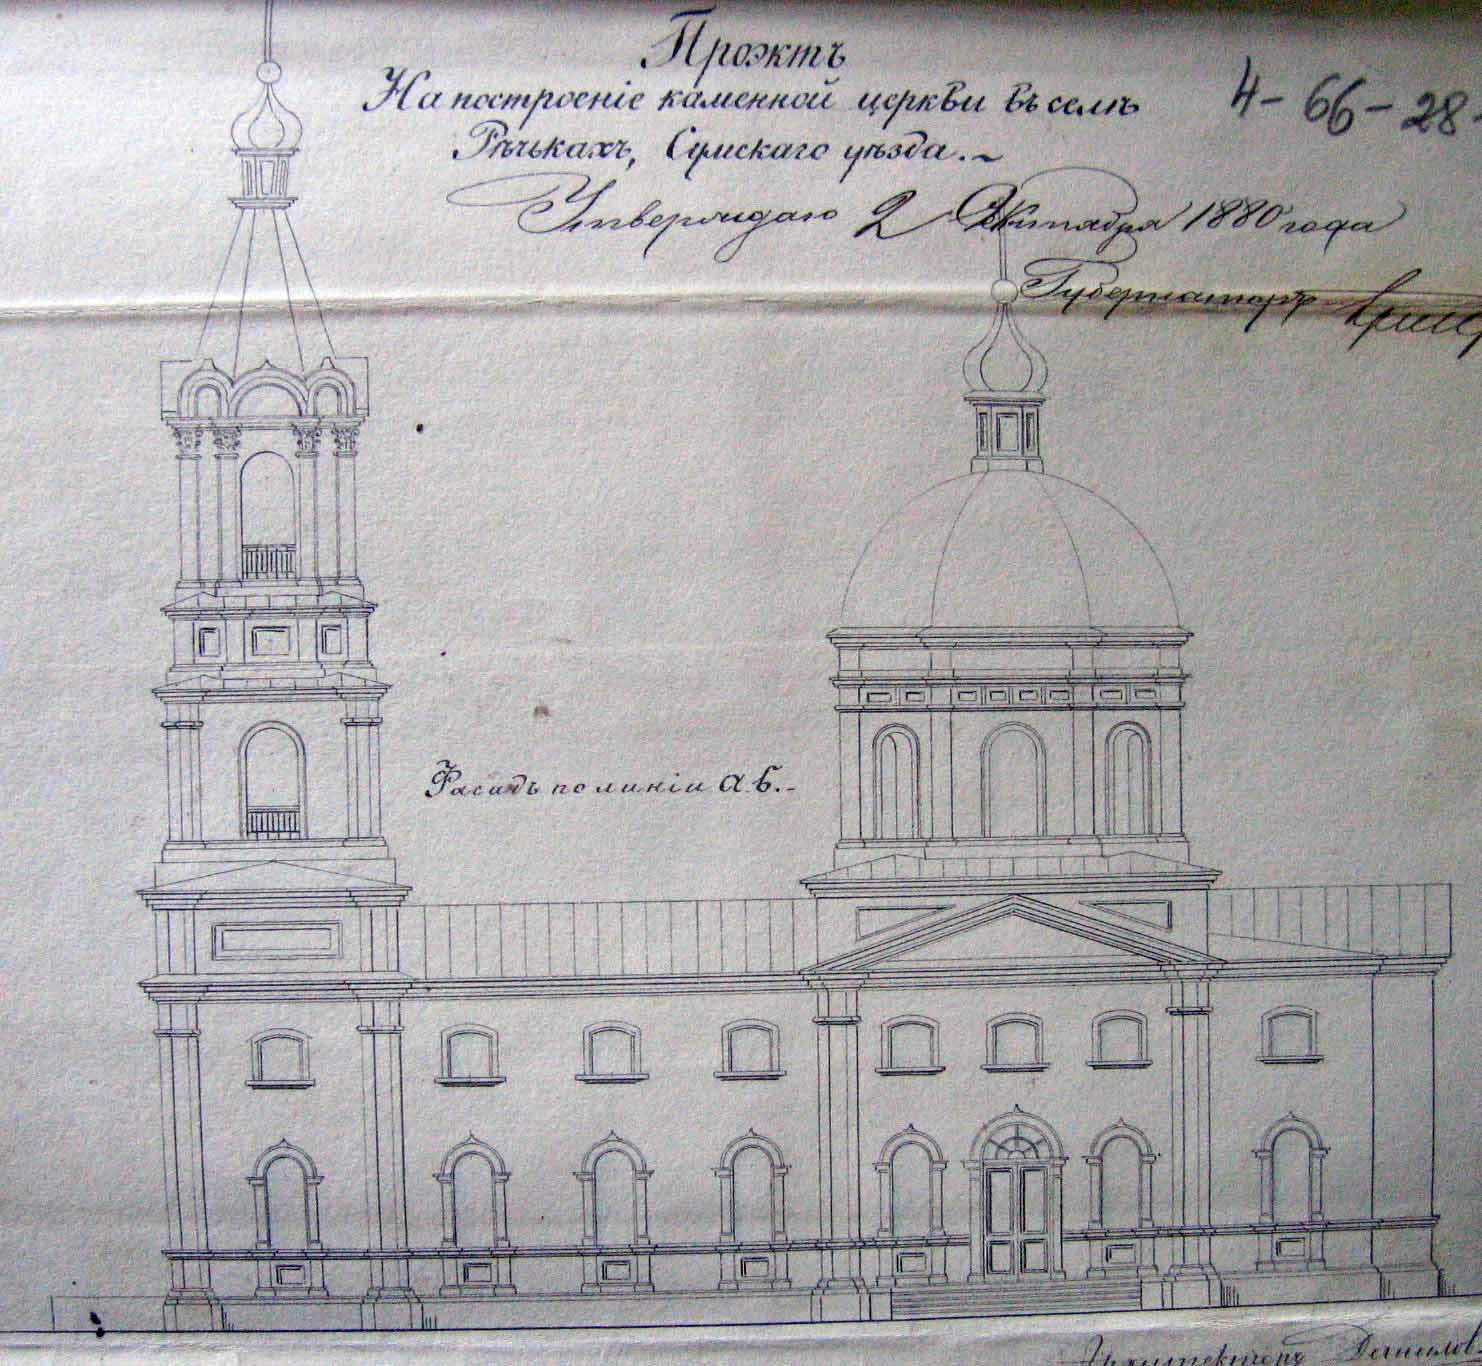 Проэктъ
На построеніе каменной церкви въ селѣ
Рѣчькахъ, Сумскаго уѣзда.~
4-66-28-
Утверждаю 2 Октября 1880 года
Губернаторъ
Фасадъ по линіи а.б.-
Архитекторъ Данилов